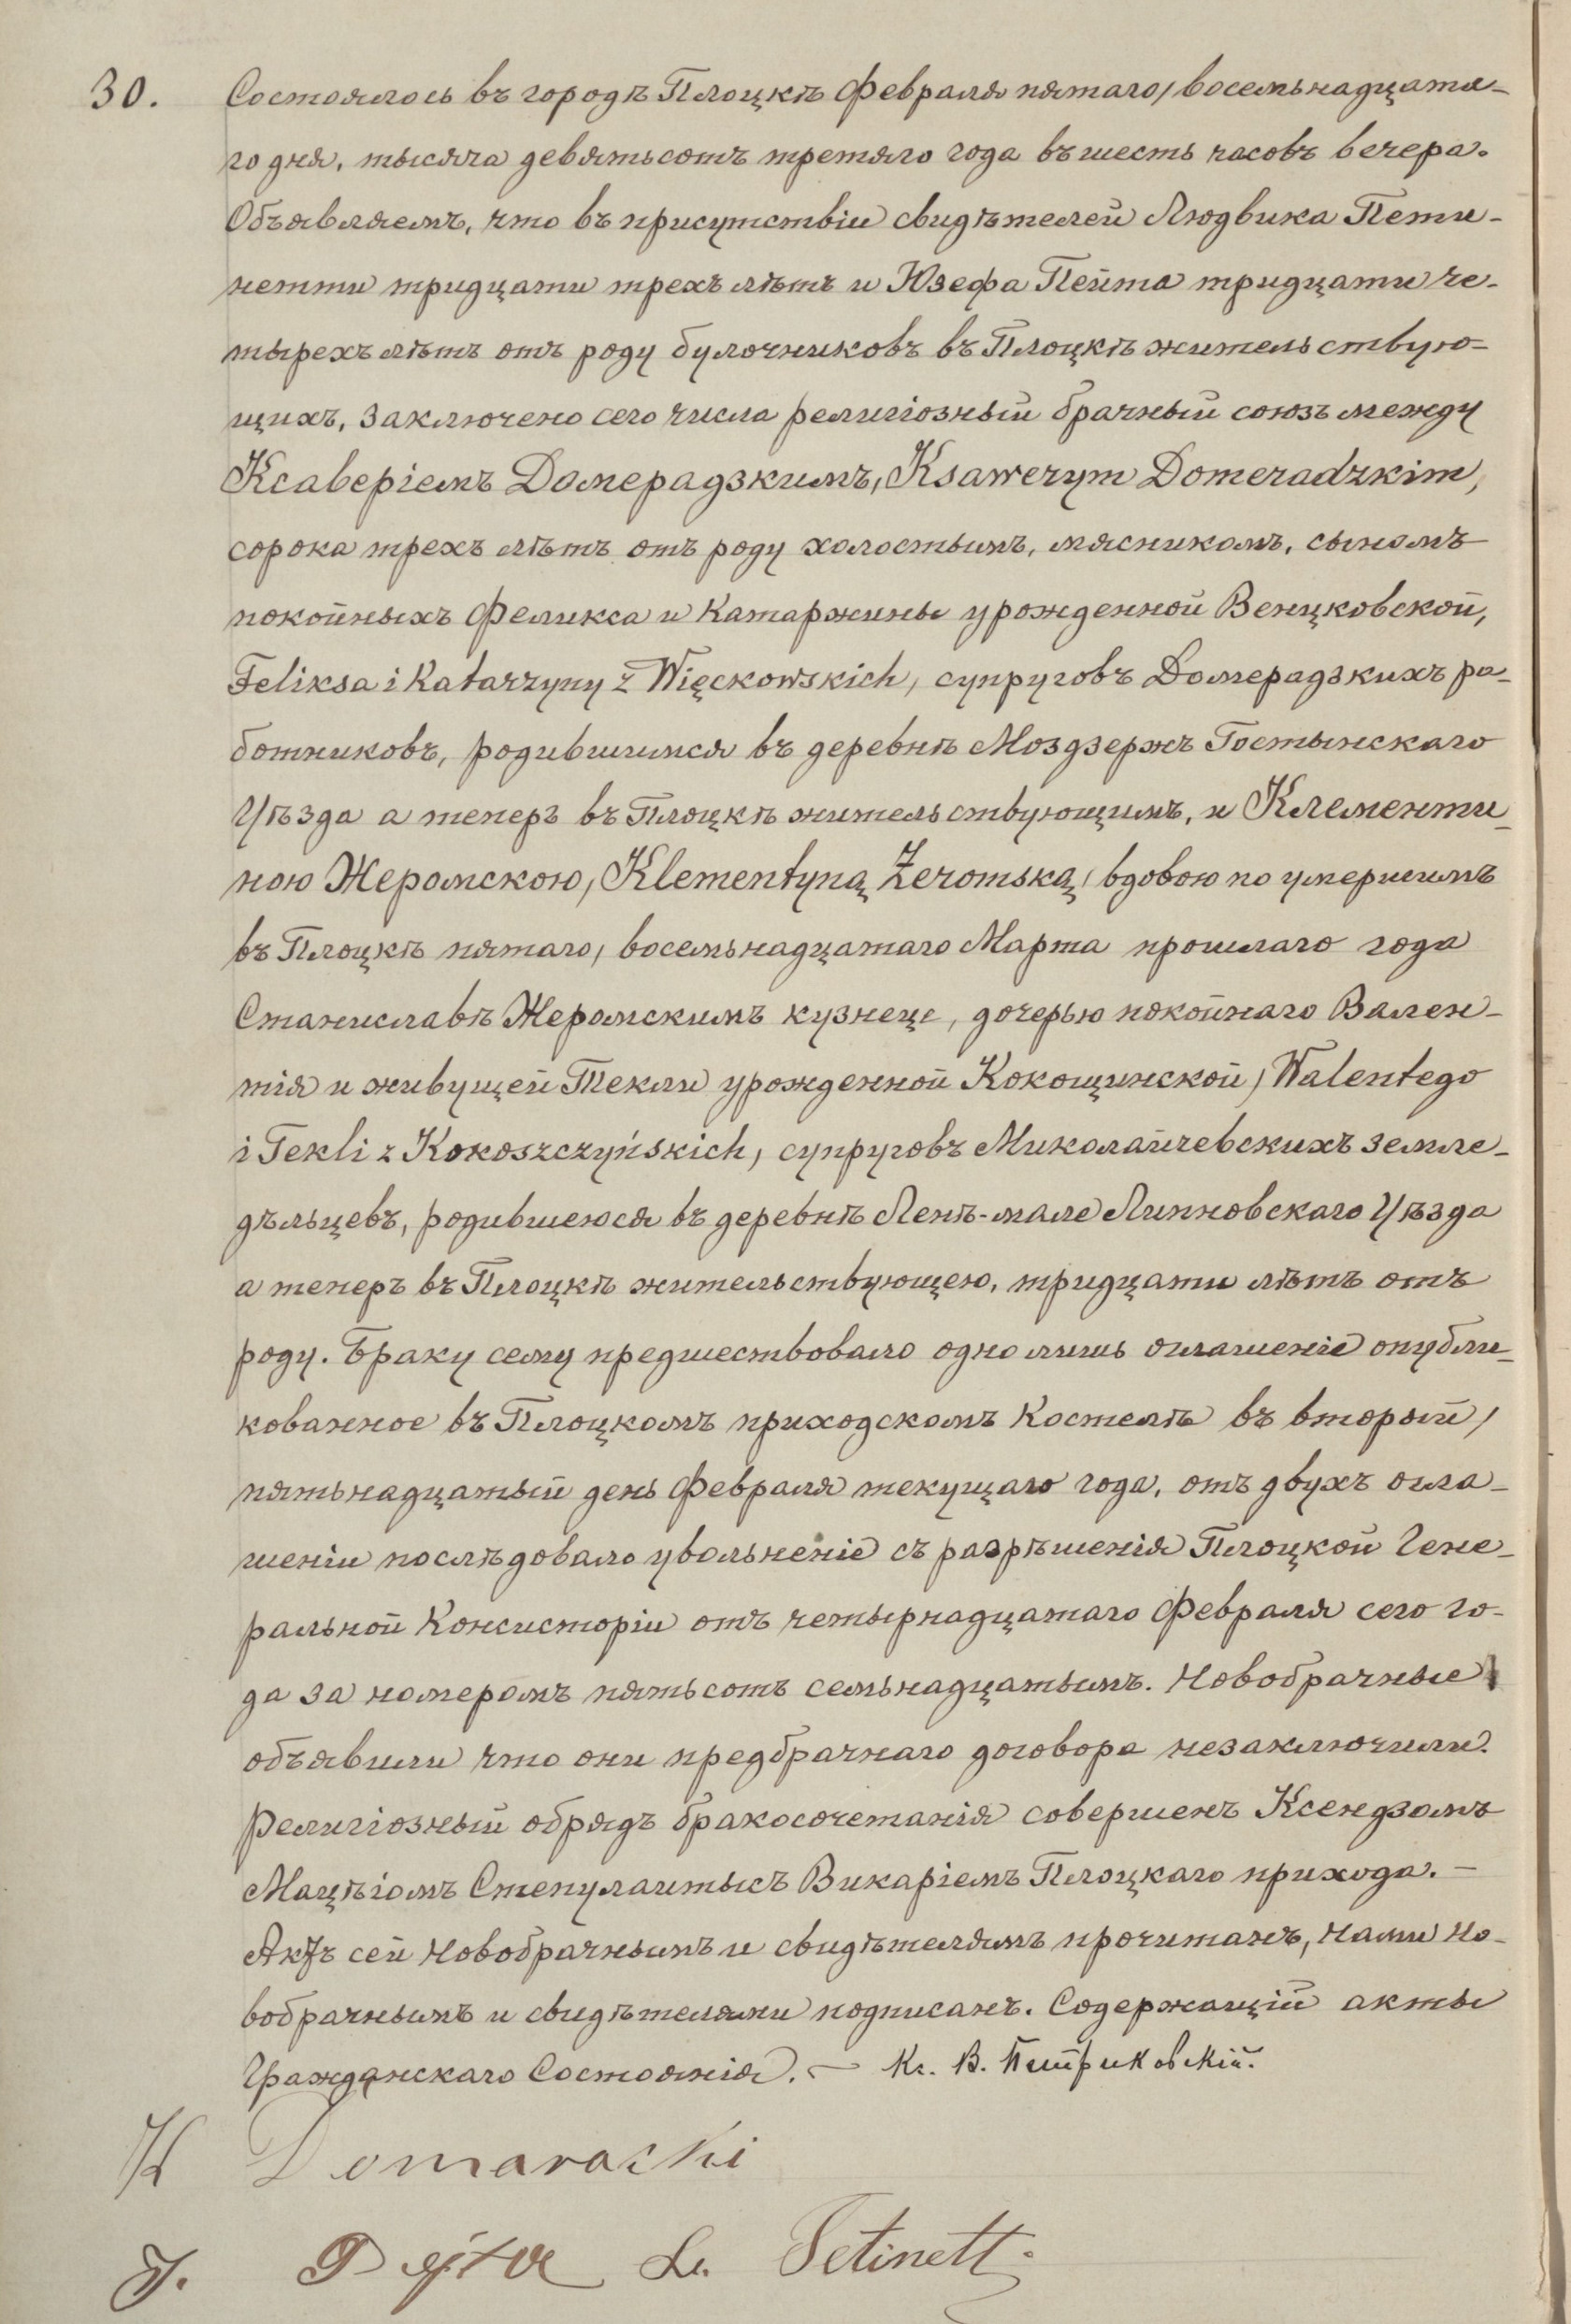 30. Состоялось въ городѣ Плоцкѣ Февраля пятаго/восемьнадцата-
го дня, тысяча девятьсотъ третяго года въ шесть часовъ вечера.
Объявляемъ, что въ присутствіи свидѣтелей Людвика Пети-
нетти тридцати трехъ лѣтъ и Юзефа Пейта тридцати че-
тырехъ лѣтъ отъ роду булочниковъ въ Плоцкѣ жительствую-
щихъ, заключено сего числа религіозный брачный союзъ между
Ксаверіемъ Домерадзкимъ, Ksawerym Domeradzkim,
сорока трехъ лѣтъ отъ роду холостымъ, мясникомъ, сыномъ
покойныхъ Феликса и Катаржины урожденной Венцковской,
Feliksa i Katarzyny z Więckowskich, супруговъ Домерадзкихъ ра-
ботниковъ, родившимся въ деревнѣ Моздзержъ Гостынскаго
Уѣзда а теперъ въ Плоцкѣ жительствующимъ, и Клементи-
ною Жеромскою, Klementyną Żeromską, вдовою по умершимъ
въ Плоцкѣ пятаго/восемьнадцатаго Марта прошлаго года
Станиславѣ Жеромскимъ кузнеце, дочерью покойнаго Вален-
тія и живущей Текли урожденной Кокощинской, Walentego
i Tekli z Kokoszczyńskich, супруговъ Миколайчевскихъ земле-
дѣльцевъ, родившеюся въ деревнѣ Ленѣ-мале Липновскаго Уѣзда
а теперъ въ Плоцкѣ жительствующею, тридцати лѣтъ отъ
роду. Браку сему предшествовало одно лишь оглашеніе опубли-
кованное въ Плоцкомъ приходскомъ Костелѣ въ вторый/
пятьнадцатый день Февраля текущаго года, отъ двухъ огла-
шеніи послѣдовало увольненіе съ разрѣшенія Плоцкой Гене-
ральной Консисторіи отъ четырнадцатаго Февраля сего го-
да за номеромъ пятьсотъ семьнадцатымъ. Новобрачные
объявили что они предбрачнаго договора незаключили.
Религіозный обрядъ бракосочетанія совершенъ Ксендзомъ
Мацѣіомъ Степулаитысъ Викаріемъ Плоцкаго прихода. —
Актъ сей Новобрачнымъ и свидѣтелямъ прочитанъ, Нами Но-
вобрачнымъ и свидѣтелями подписанъ. Содержащій акты
Гражданскаго Состоянія. — Кс. В. Петриковскій.
K Domaracki
J. Pejta L. Petinetti